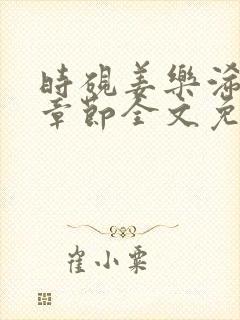 時硯姜樂
章節全文免
崔小粟